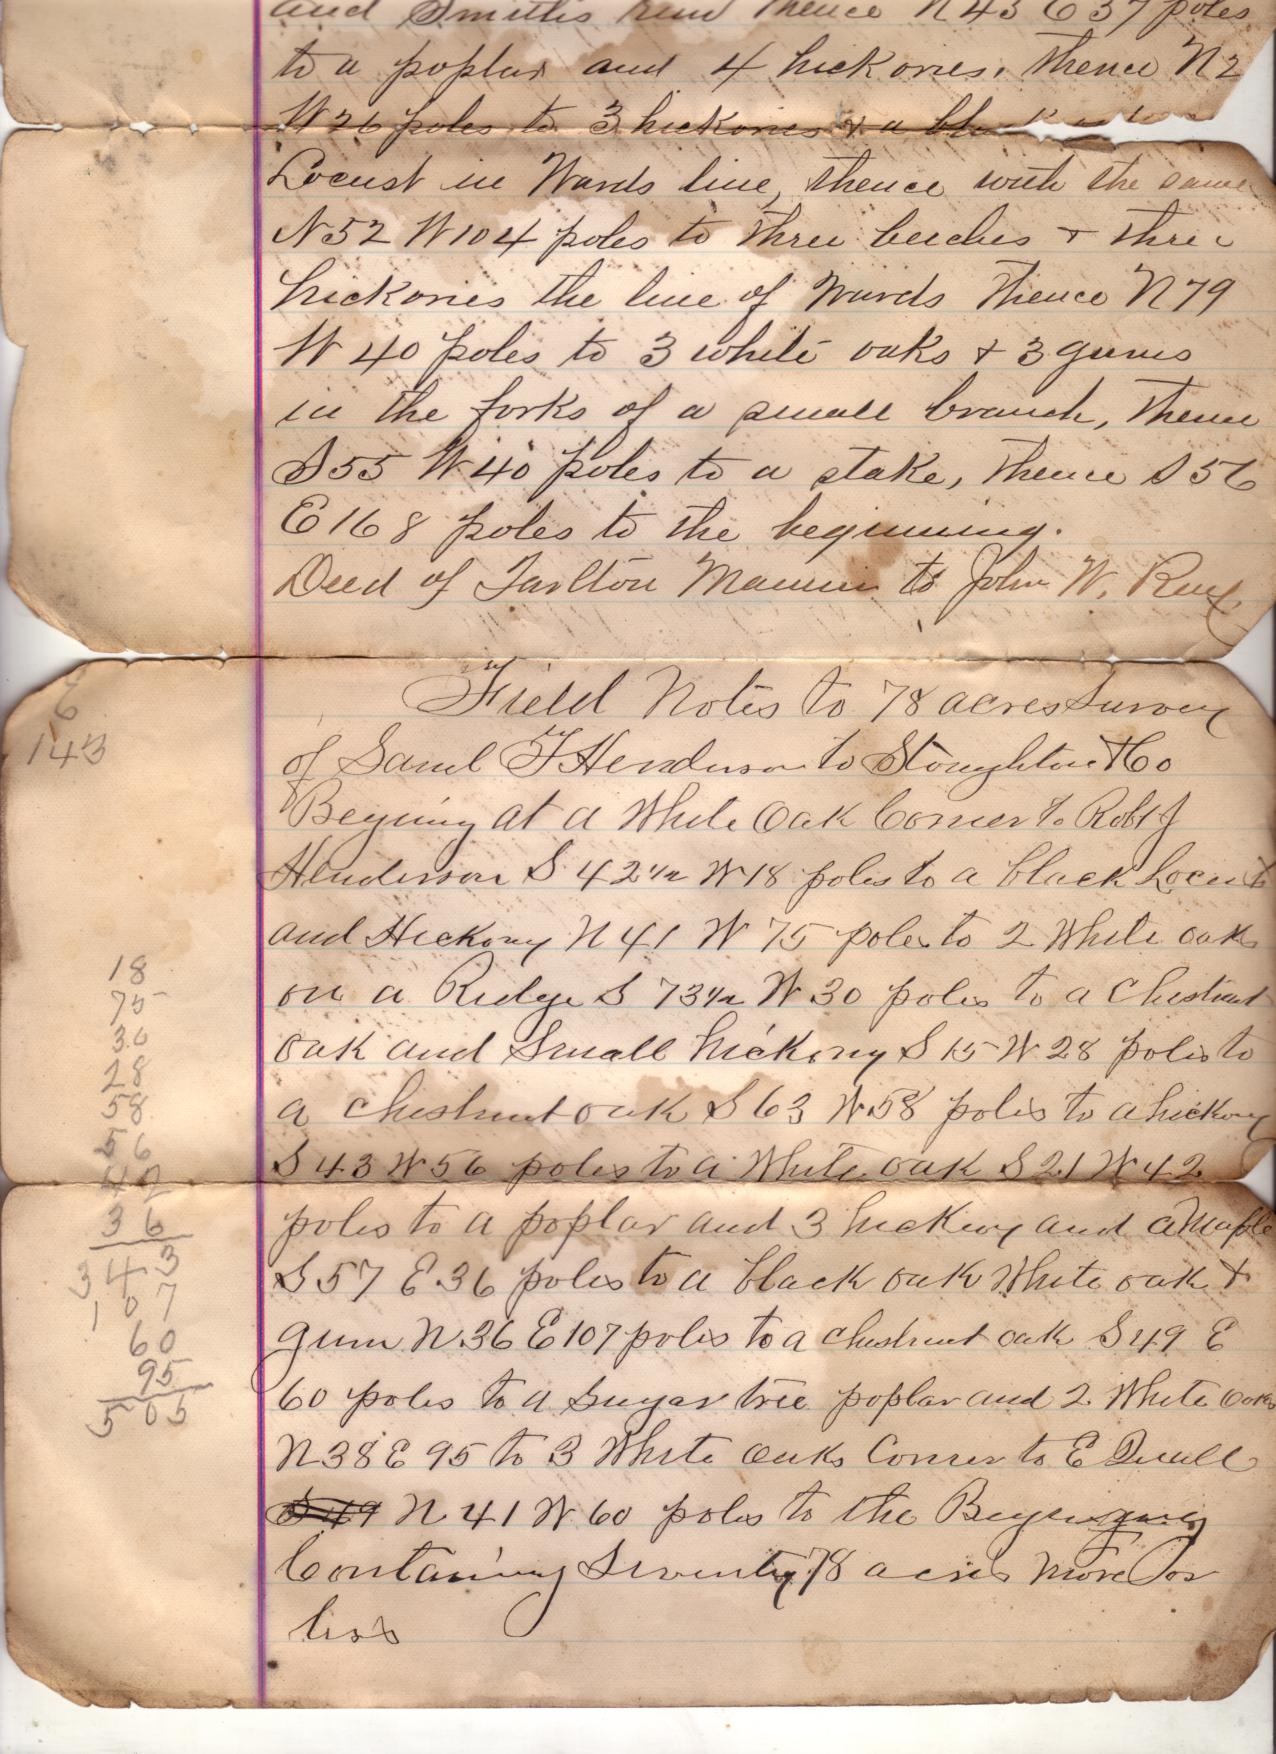 and Smiths run thence N 43 E 37 poles
to a poplar and 4 hickories, thence N 2
W 26 poles to 3 hickories & a black
Locust in Wards line, thence with the same
N 52 W 104 poles to three beeches & three
hickories the line of Wards Thence N 79
W 40 poles to 3 white oaks & 3 gums
in the forks of a small branch, thence
S 55 W 40 poles to a stake, thence S 56
E 168 poles to the beginning.
Deed of Tarlton to John W.
Field Notes to 78 acres Survey
of Saml F Henderson to Stoughton & Co
Begining at a White Oak Corner to Robt J
Henderson S 42 1/2 W 18 poles to a black Locust
and Hickory N 41 W 75 poles to 2 White oaks
on a Ridge S 73 1/2 W 30 poles to a Chestnut
oak and Small hickory S 15 W 28 poles to
a chestnut oak S 63 W 58 poles to a hickory
S 43 W 56 poles to a White oak S 21 W 42
poles to a poplar and 3 hickory and a Maple
S 57 E 36 poles to a black oak White oak &
gum N 36 E 107 poles to a chestnut oak S 49 E
60 poles to a Sugar tree poplar and 2 White oaks
N 38 E 95 to 3 White oaks Corner to E
S 49 N 41 W 60 poles to the
Containing Seventy 78 acres More or
less
6
143
18
75
30
28
58
56
42
36
343
107
60
95
505